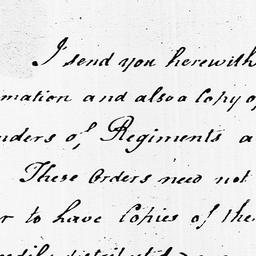 I send you herewith
mation and also a Copy of
nders of Regiments a
These Orders need not
r to have Copies of the